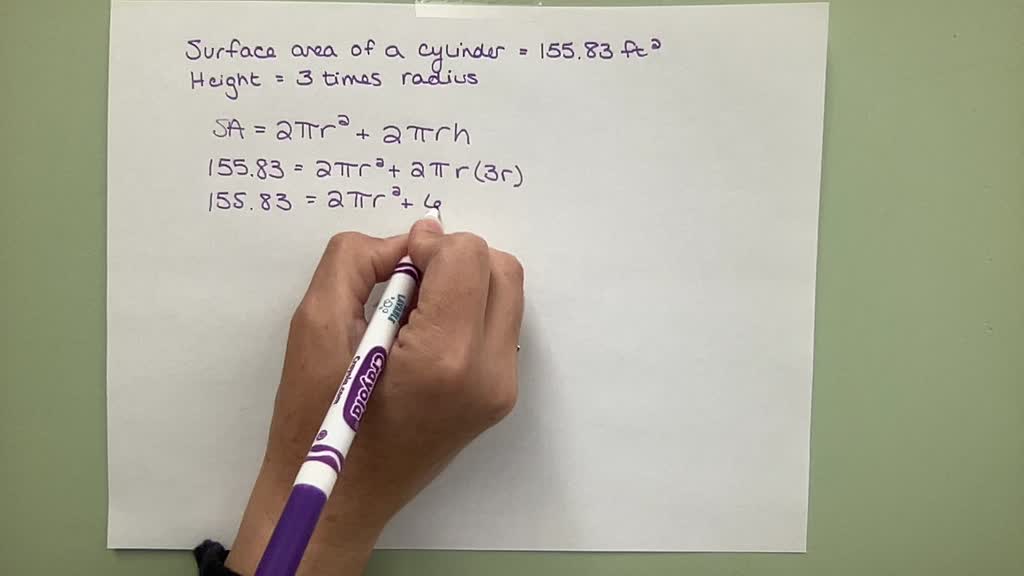 Surface area of a cylinder = 155.83 ft²
Height = 3 times radius
SA = 2πr² + 2πrh
155.83 = 2πr² + 2πr(3r)
155.83 = 2πr² + 6
Crayola
Crayola.com